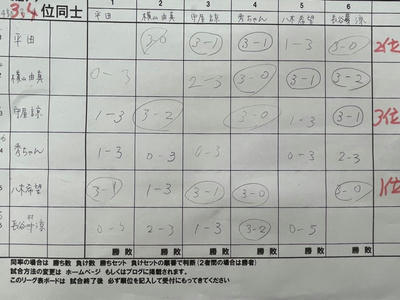 3.4位同士
1 2 3 4 5 6
平田 横山由真 守屋諒 秀ちゃん 八木希望 長谷部涼
平田 3-0 3-1 3-1 1-3 3-0 2位
横山由真 0-3 2-3 3-0 3-1 3-2
守屋諒 1-3 3-2 3-0 1-3 3-1 3位
秀ちゃん 1-3 0-3 0-3 0-3 2-3
八木希望 3-1 1-3 3-1 3-0 3-0 1位
長谷部涼 2-3 1-3 3-2
勝 敗 勝 敗 勝 敗 勝 敗 勝 敗 勝 敗
同率の場合は 勝ち数 負け数 勝ちセット 負けセットの順番で判断(2者間の場合は勝者)
試合方法の変更は ホームページ もしくはブログに掲載されます。
このリーグ表ボードは 試合終了後 必ず順位を記入して受付にもってきてください